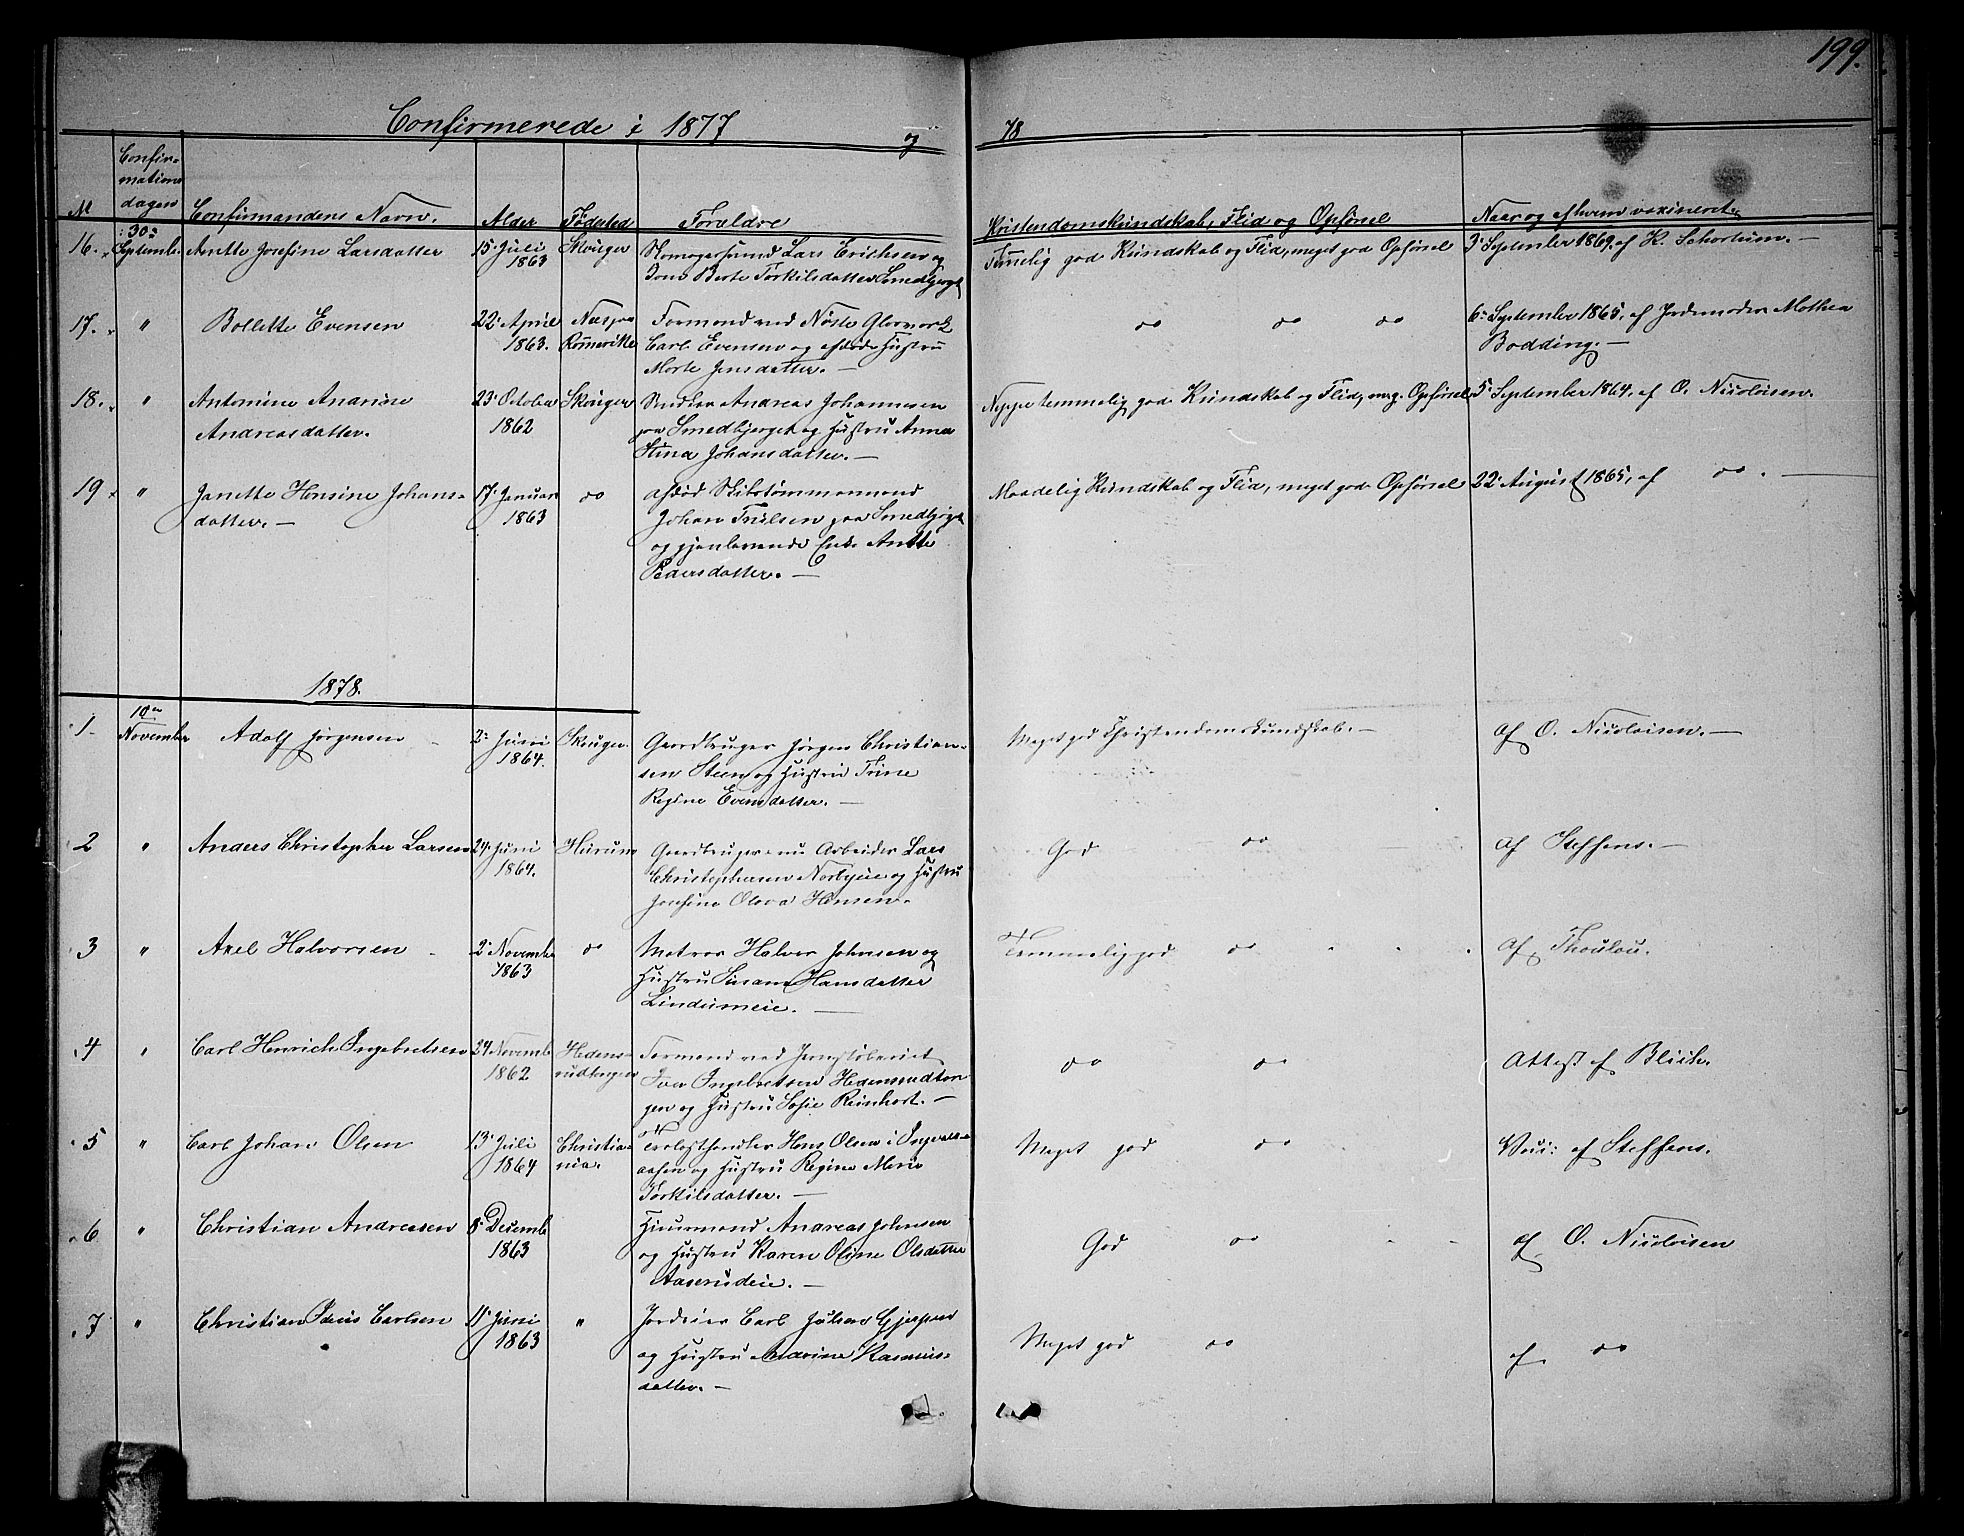 199.
Confirmerede i 1877 og 78
Confir-
mations
dagen
№ Confirmandens Navn. Alder Fødested Forældre Kristendomskundskab, Flid og Opførsel Naar og af hvem vaxineret
16. 30te Septemb. Anette Josefine Larsdatter 15. Juli 1863 Skouger Skomagersvend Lars Erichsen og
Berte Torkilsdatter Smedbjerget
Temmelig god Kundskab og Flid, meget god Opførsel 3. September 1869, af K. Schortum. —
17. " Bollette Evensen 22. April 1863. Næs paa Romerike Formand ved Nøste Glasværk
Carl Evensen og afdøde Hustru
Marte Jensdatter. —
do do do 6. September 1865, af Jordemoder Mathea
Bodding. —
18. " Antomine Anarine
Andreasdatter. 23. October 1862 Skouger Snedker Andreas Johannesen
paa Smedbjerget og Hustru Anna
Stina Johansdatter. —
Neppe temmelig god Kundskab og Flid, meg. g. Opførsel 5. September 1864, af O. Nicolaisen.
19 " Janette Hansine Johans-
datter. — 17. Januar 1863 do afdød
Johan Truelsen paa Smedbjerget
og gjenlevende Enke Anette
Pedersdatter. —
Maadelig Kundskab og Flid, meget god Opførsel 22. August 1865, af do. —
1878.
1. 10de November Adolf Jørgensen 2. Juni 1864. Skouger. Gaardbruger Jørgen Christian-
sen Steen og Hustru Trine
Regine Evensdatter. —
Meget god Christendomskundskab. — af O. Nicolaisen. —
2 " Anders Christopher Larsen 24. Juni 1864. Hurum Gaardbruger nu Arbeider Lars
Christophersen Norbyeie og Hustru
Josefine Olava Hansen.
God do af Steffens. —
3 " Axel Halvorsen 2. November 1863 do Matros Halvor Johnsen og
Hustru Susane Hansdatter
Lindumeie. —
Temmelig god do af Thoulou.
4 " Carl Henrich Ingebretsen 24 Novemb 1862 Hedens-
rudtangen Formand ved Jernstøberiet
Ingebretsen Hedensrudtan
gen og Hustru Sofie Reinhart. —
do do Attest af Blich.
5 " Carl Johan Olsen 13. Juli 1864 Christia-
nia. Hans Olsen i
aasen og Hustru Regine Marie
Torkilsdatter. —
Meget god do Vac: af Steffens.
6 " Christian Andreasen 8. Decemb 1863 Huusmand Andreas Johnsen
og Hustru Karen Oline Olsdatter
Aaserudeie. —
God do af O. Nicolaisen
7 " Christian Carlsen 11. Juni 1863 " Jordeier Carl Julsen Gjespen
og Hustru Andrine Rasmus-
datter. —
Meget god do af do